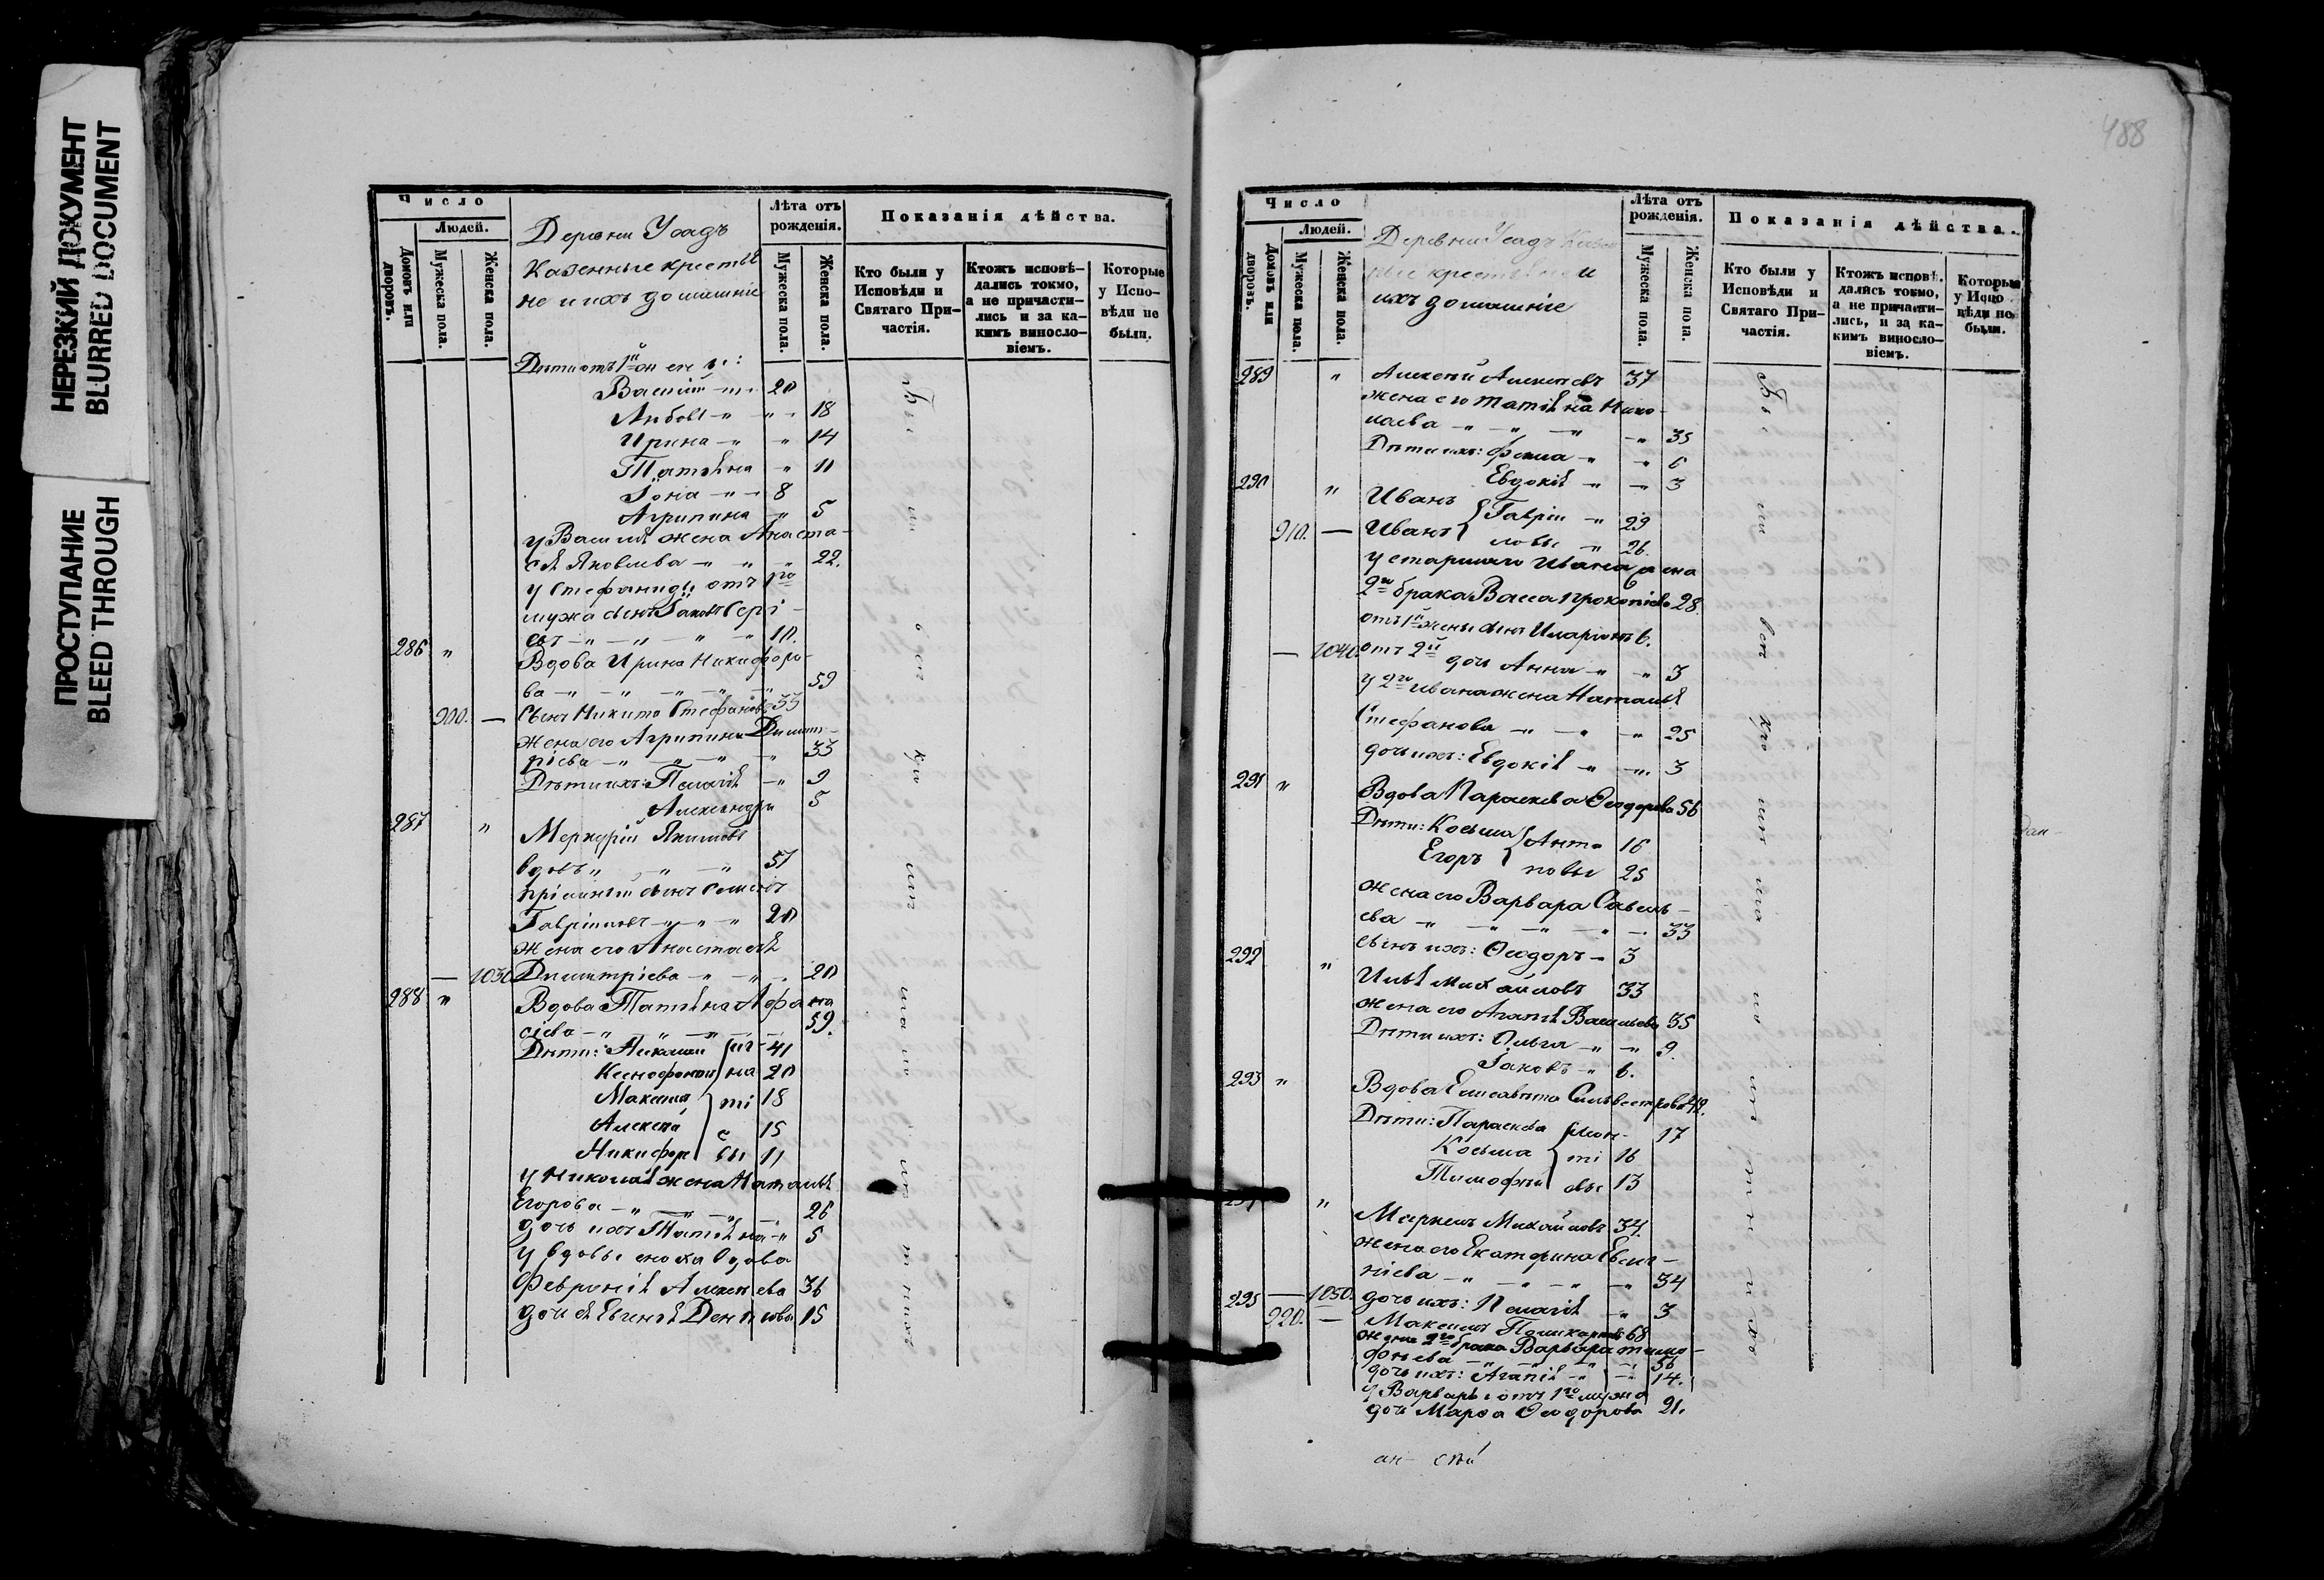 НЕРЕЗКИЙ ДОКУМЕНТ
BLURRED DOCUMENT
ПРОСТУПАНИЕ
BLEED THROUGH
Число
Людей.
Домовъ или дворовъ.
Мужеска пола.
Женска пола.
Деревни Усадъ
Казенные крестья
не и ихъ домашніе
Лѣта отъ рожденія.
Мужеска пола.
Женска пола.
Показанія дѣйства.
Кто были у Исповѣди и Святаго Причастія.
Ктожъ исповѣдались токмо, а не причастились и за какимъ винословіемъ.
Которые у Исповѣди не были.
Дѣти отъ 1й жены:
Василій 20
Любовь 18
Ирина 14
Татьяна 11
Іона 8
Агрипина 5
у Василія жена Анаста-
сія Яковлева 22.
у Стефаниды отъ 1го
мужа сынъ Іаковъ Сергі-
евъ 10.
286 Вдова Ирина Никифоро-
ва 59
900. Сынъ Никита Стефановъ 33
жена его Агрипина Димит-
ріева 33
Дѣти ихъ: Пелагія 9
Александра 5
287 Меркурій Якимовъ
вдовъ 51
пріемный сынъ Семенъ
Гавріиловъ 20
жена его Анастасія
1030 Димитріева 20
288 Вдова Татьяна Афана
сіева 59.
Дѣти: 41
Ксенофонтъ 20
Максимъ 18
Алексѣй 15
Никифоръ 11
у Николая жена Наталья
Егорова 26
дочь ихъ Татьяна 5
у вдовы сноха вдова
Февронія Алексѣева 36
дочь ея Евгенія Денисова 15
488
Число
Людей.
Домовъ или дворовъ.
Мужеска пола.
Женска пола.
Деревни Усадъ Казен
ные крестьяне и
ихъ домашніе
Лѣта отъ рожденія.
Мужеска пола.
Женска пола.
Показанія дѣйства.
Кто были у Исповѣди и Святаго Причастія.
Ктожъ исповѣдались токмо, а не причастились, и за какимъ винословіемъ.
Которые у Исповѣди не были.
289 Алексѣй Алексѣевъ 37
жена его Татьяна Нико-
лаева 35
Дѣти ихъ: Фекла 6
Евдокія 3
290 Иванъ Гаврiи 29
910. Иванъ ловы 26.
у старшаго Ивана жена
2го брака Васса Прокопіева 28.
отъ 1й жены сынъ Иларіонъ 6.
1040. отъ 2й дочь Анна 3
у 2го Ивана жена Наталья
Стефанова 25
дочь ихъ: Евдокія 3
291 Вдова Параскева Ѳеодорова 56
Дѣти: Косьма Анто 16
Егоръ новы 25
жена его Варвара Савель-
ева 33
сынъ ихъ: Ѳеодоръ 3
292 Илья Михайловъ 33
жена его Агапія Васильева 35
Дѣти ихъ: Ольга 9.
Іаковъ 6.
293 Вдова Елисавета Сильвестрова 42.
Дѣти: Параскева 17
Косьма 16
Тимофѣй 13
294 Маркелъ Михайловъ 34.
жена его Екатерина Евге-
ніева 34
1050. дочь ихъ: Пелагія 3
295 220. Максимъ Поликарповъ 68
жена 2го брака Варвара Тимо-
фѣева 56
дочь ихъ: Агапія 14.
у Варвары отъ 1го мужа
дочь Марѳа Ѳеодорова 21.